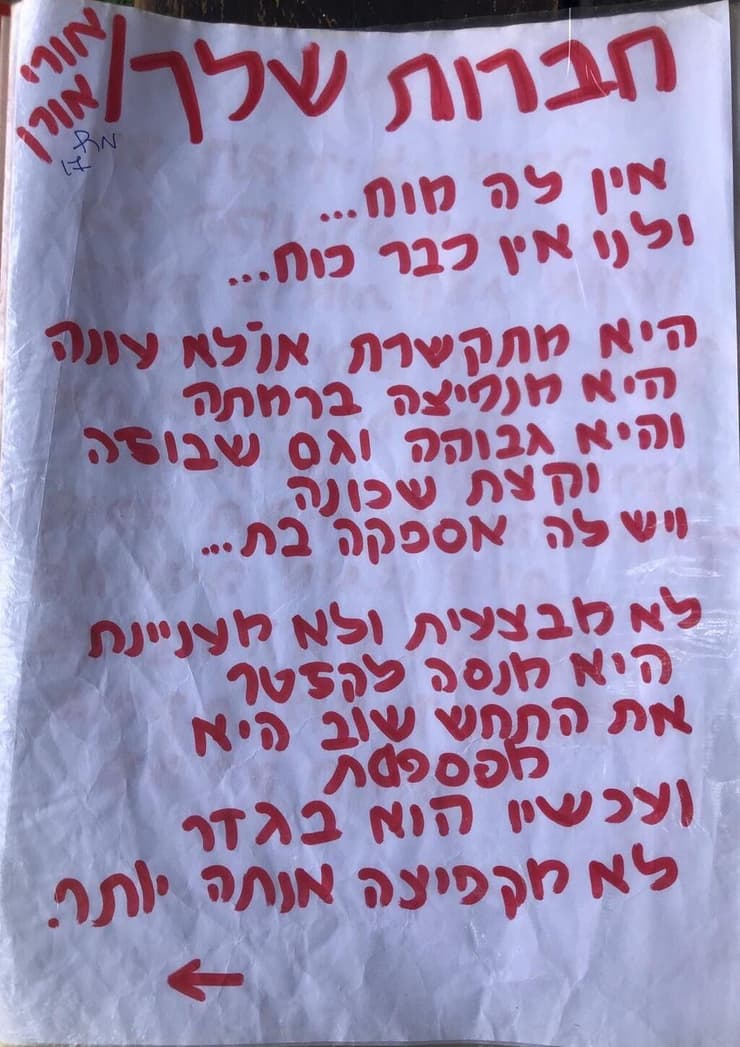 חברות שלך/
אורי
אורן
17
אין לה מוח...
ולנו אין כבר כוח...
היא מתקשרת אולא עונה
היא מנפיצה ברמתה
והיא גבוהה וגם שבוזה
וקצת שכונה
ויש לה אספקה בת...
לא מבצעית ולא מעניינת
היא מנסה להצטר
את התחש שוב היא
מפספסת
ועכשיו הוא בגדר
לא מקפיצה אותה יותר.
←